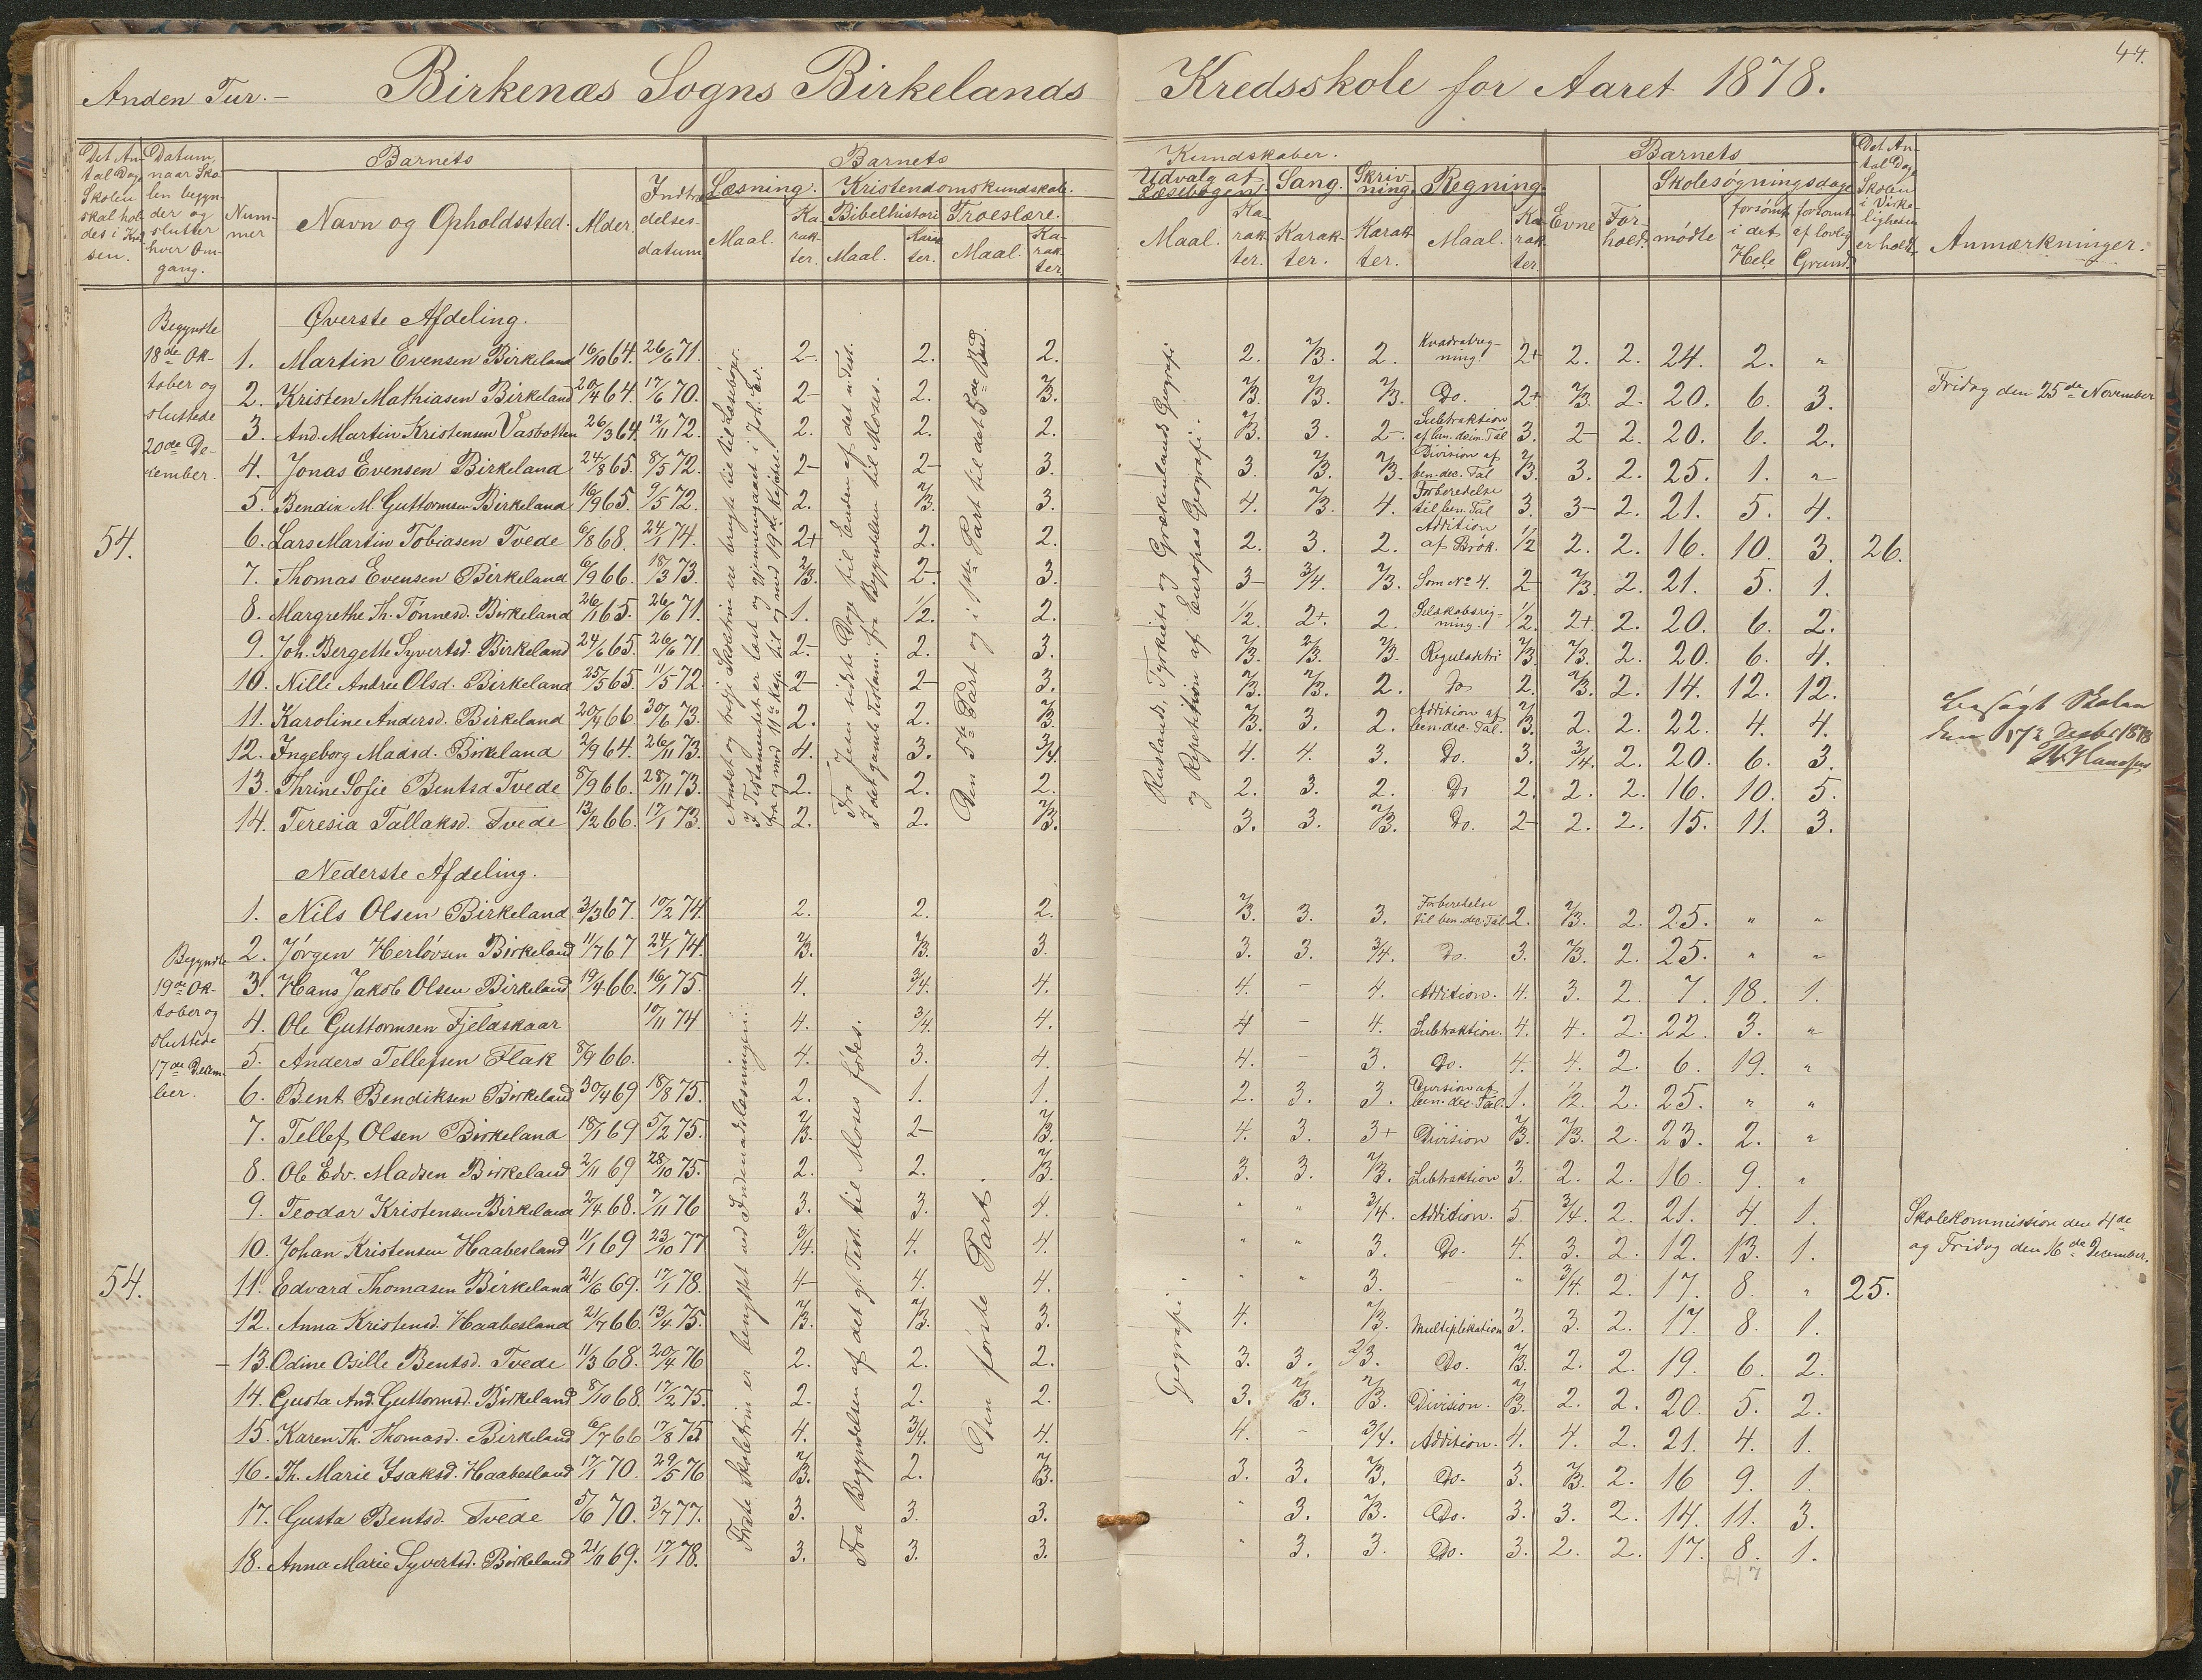 44.
Anden Tur. – Birkenæs Sogns Birkelands Kredsskole for Aaret 1878.
Det Antal Dage Skolen skal holdes i Kredsen. Datum, naar Skolen begynder og slutter hver Omgang. Nummer Barnets Navn og Opholdssted. Alder. Indtrædelsesdatum Barnets Kundskaber.
Læsning. Maal. Karakter. Kristendomskundskab. Bibelhistorie Maal. Karakter. Troeslære. Maal. Karakter
Udvalg af Læsebogen. Maal. Karakter. Sang. Karakter. Skrivning. Karakter. Regning. Maal. Karakter.
Barnets Evne Forhold. Skolesøgningsdage mødte forsømt i det Hele forsømt af lovlig Grund. Det Antal Dage Skolen i Virkeligheden er holdt. Anmærkninger.
Øverste Afdeling.
Begyndte 18de Oktober og sluttede 20de December.
54.
1. Martin Evensen Birkeland 16/10 64. 26/6 71. 2- 2. 2. 2. 2/3. 2. Kvadratregning. 2+ 2. 2. 24. 2. "
2. Kristen Mathiasen Birkeland 20/4 64. 17/6 70. 2- 2. 2/3. 2/3. 2/3. 2/3. Do. 2+ 2/3. 2. 20. 6. 3.
3. And. Martin Kristensen Vasbotten 26/3 64. 12/11 72. 2. 2. 2. 2/3. 3. 2-. Subtraktion af ben. deim. Tal 3. 2- 2. 20. 6. 2.
4. Jonas Evensen Birkeland 24/8 65. 8/5 72. 2- 2- 3. 3. 2/3. 2/3. Division af ben. dec. Tal 2/3. 3. 2. 25. 1. "
5. Bendix M. Guttormsen Birkeland 16/9 65. 9/5 72. 2. 2/3. 3. 4. 2/3. 4. Forberedelse til ben. Tal 3. 3- 2. 21. 5. 4.
6. Lars Martin Tobiasen Tvede 6/8 68. 24/1 74. 2+ 2. 2. 2. 3. 2. Addition af Brøk. 1/2 2. 2. 16. 10. 3. 26.
7. Thomas Evensen Birkeland 6/9 66. 18/3 73. 2/3. 2-. 3. 3- 3/4. 2/3. Som No 4. 2- 2/3. 2. 21. 5. 1.
8. Margrethe Th. Tønnesd. Birkeland 26/1 65. 26/6 71. 1. 1/2. 2. 1/2. 2+. 2. Selskabsregning. 1/2. 2+. 2. 20. 6. 2.
9. Joh. Bergette Syvertsd. Birkeland 24/6 65. 26/6 71. 2-. 2. 3. 2/3. 2/3. 2/3. Reguladetri 2/3. 2/3. 2. 20. 6. 4.
10. Nille Andrea Olsd. Birkeland 25/5 65. 11/5 72. 2- 2- 3. 2/3. 2/3. 2. Do 2. 2/3. 2. 14. 12. 12.
11. Karoline Andersd. Birkeland 20/4 66. 30/6 73. 2. 2. 2/3. 2/3. 3. 2. Addition af ben. dec. Tal. 2/3. 2. 2. 22. 4. 4.
12. Ingeborg Madsd. Birkeland 2/9 64. 26/11 73. 4. 3. 3/4. 4. 4. 3. Do. 3. 3/4. 2. 20. 6. 3.
13. Thrine Sofie Bentsd Tvede 8/9 66. 28/11 73. 2. 2. 2. 2. 3. 2. Do 2. 2. 2. 16. 10. 5.
14. Teresia Tallaksd. Tvede 13/2 66. 17/1 73. 2. 2. 2/3. 3. 3. 2/3. Do. 2- 2. 2. 15. 11. 3.
Andet og tredje Skoletrin ere brugte til til Læsebøger.
I Testamentet er læst og gjennemgaaet i Joh. Ev.
fra og med 11te Kap. til og med 19de Kapitel.
Fra Jesu sidste Dage til Enden af det n. Test.
I det gamle Testam. fra Begyndelsen til Moses.
Den 5te Part og i 1ste Part til det 5de Bud.
Ruslands, Tyrkiets og Grækenlands Geografi
og Repetition af Europas Geografi.
Fridag den 25de November
Besøgt Skolen
den 17de Decbr 1878
Nederste Afdeling.
Begyndte 19de Oktober og sluttede 17de December.
54.
1. Nils Olsen Birkeland 3/3 67. 10/2 74. 2. 2. 2. 2/3. 3. 3. Forberedelse til ben. dec. Tal 2. 2/3. 2. 25. " "
2. Jørgen Herløvsen Birkeland 11/7 67 24/1 74. 2/3. 2/3. 3. 3. 3. 3/4. Do. 3. 2/3. 2. 25. " "
3. Hans Jakob Olsen Birkeland 19/4 66. 16/1 75. 4. 3/4. 4. 4. – 4. Addition. 4. 3. 2. 7. 18. 1.
4. Ole Guttormsen Fjeldskaar 10/11 74 4. 3/4. 4. 4 – 4. Subtraktion. 4. 4. 2. 22. 3. "
5. Anders Tellefsen Flak 8/9 66. 4. 3. 4. 4. – 3. Do. 4. 4. 2. 6. 19. "
6. Bent Bendiksen Birkeland 30/4 69 18/8 75. 2. 1. 1. 2. 3. 3. Division af ben. dec. Tal. 1. 1/2. 2. 25. " "
7. Tellef Olsen Birkeland 18/1 69 5/2 75. 2/3. 2- 2/3. 4. 3. 3+ Division 2/3. 2/3. 2. 23. 2. "
8. Ole Edv. Madsen Birkeland 2/11 69 28/10 75. 2. 2. 2/3. 3. 3. 2/3. Subtraktion 3. 2. 2. 16. 9. "
9. Teodor Kristensen Birkeland 2/4 68. 7/11 76 3. 3. 4. " " 3/4. Addition. 5. 3/4. 2. 21. 4. 1.
10. Johan Kristensen Haabesland 11/1 69 23/10 77 3/4. 4. 4. " " 3. Do. 4. 3. 2. 12. 13. 1.
11. Edvard Thomasen Birkeland 21/6 69. 17/1 78. 4- 4. 4. " " 3. – " 3/4. 2. 17. 8. " 25.
12. Anna Kristensd. Haabesland 21/7 66. 13/4 75. 2/3. 2/3. 3. 4. 2/3. Multiplikation 3. 3. 2. 17. 8. 1.
– 13. Odine Osille Bentsd. Tvede 11/3 68. 20/4 76 2. 2. 2. 3. 3. 2/3. Do. 2/3. 2. 2. 19. 6. 2.
14. Gusta And. Guttormsd. Birkeland 8/10 68. 17/2 75. 2. 2. 2. 3. 2/3. 2/3. Division. 2/3. 2. 2. 20. 5. 2.
15. Karen Th. Thomasd. Birkeland 6/7 66 17/8 75 4. 3/4. 4. 4. – 3/4. Addition. 4. 4. 2. 21. 4. 1.
16. Th. Marie Isaksd. Haabesland 17/1 70. 29/5 76 2/3. 2. 2/3. 3. 3. 2/3. Do. 3. 2/3. 2. 16 9. 1.
17. Gusta Bentsd. Tvede 5/6 70. 3/7 77. 3. 3. 3. " 3. 2/3. Do. 3. 3. 2. 14. 11. 3.
18. Anna Marie Syvertsd. Birkeland 21/11 69. 17/1 78. 3. 3. 3. " 3. 3. Do. 3. 2. 2. 17. 8. 1.
Første Skoletrin er benyttet ved Indenadslæsningen.
Fra Begyndelsen af det gl. Test. til Moses fødes.
Den første Part.
Geografi.
Skolekommission den 4de
og Fridag den 16de December.